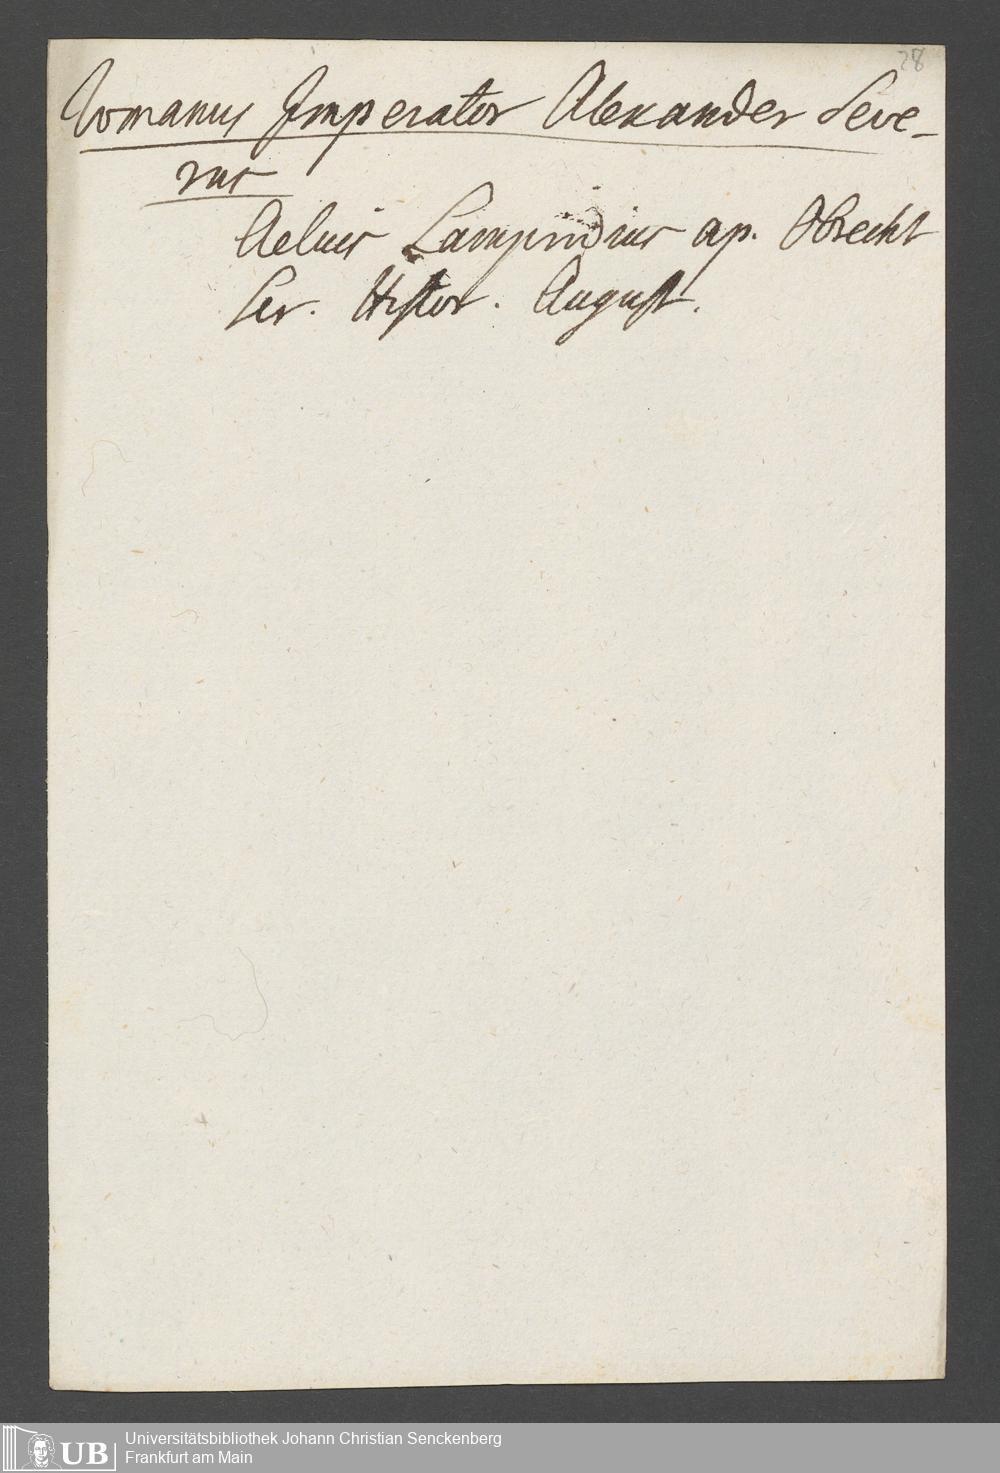 28
Romanus Imperator Alexander Seve-
rus
Aelius Lampridius ap. Obrecht
Scr. Histor. August.
UB
Universitätsbibliothek Johann Christian Senckenberg
Frankfurt am Main